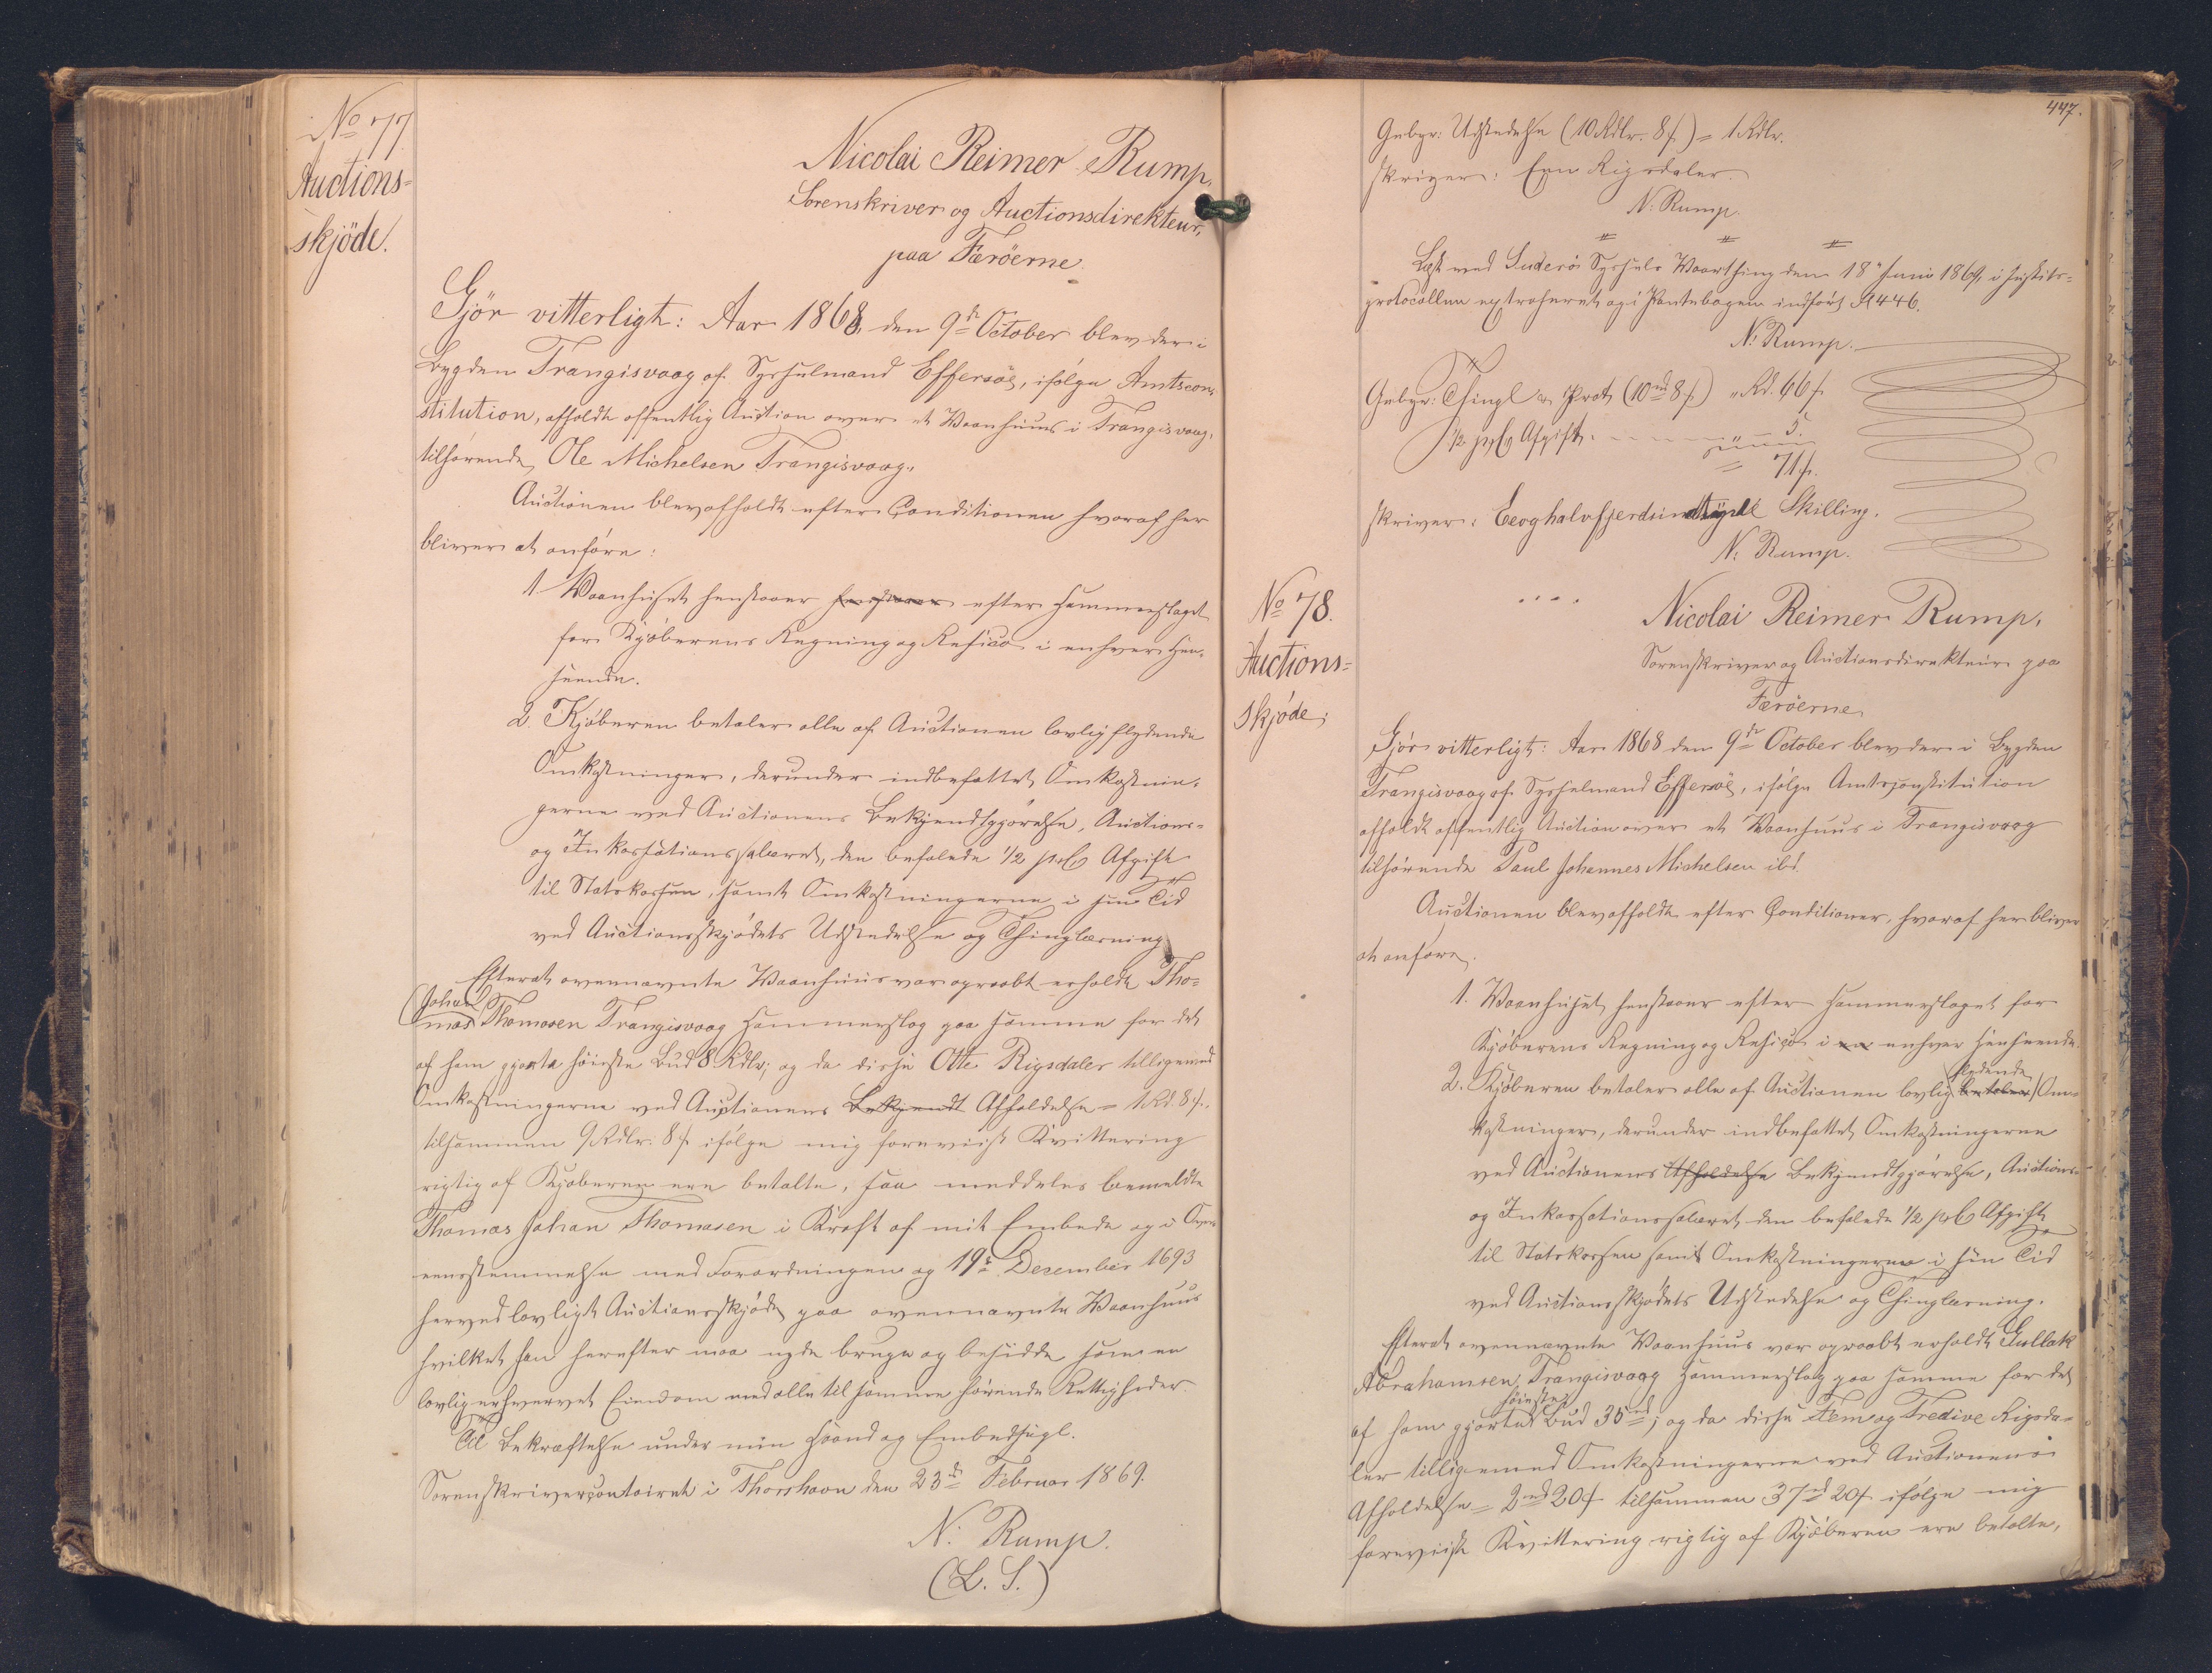 No 77
Auctions=
skjöde.
Nicolai Reimer Rump,
Sorenskriver og Auctionsdirekteur,
paa Færöerne
Gjör vitterligt: Aar 1868, den 9de October blev der i
Bygden Trangisvaag af Sysselmand Effersöe, ifölge Amtscon=
stitution, afholdt offentlig Auction over et Vaanhuus i Trangisvaag,
tilhørende Ole Michelsen Trangisvaag.
Auctionen blev afholdt efter Conditionen hvoraf her
bliver at anföre:
1 Vaanhuset henstaaer henstaaer efter Hammerslaget
for Kjöberens Regning og Risico i enhver Hen=
seende.
2. Kjöberen betaler alle af Auctionen lovlig flydende
Omkostninger, derunder indbefattet Omkostnin=
gerne ved Auctionens Bekjendtgjörelse, Auctions=
og Inkassationssalæret, den befalede 1/2 prC Afgift
til Statskassen, samt Omkostningerne i sin Tid
ved Auctionsskjödets Udstedelse og Thinglæsning
Efterat ovennævnte Vaanhuus var opraabt erholdt Tho=
(Johan)
mas Thomasen Trangisvaag Hammerslag paa samme for det
af ham gjorte höieste Bud 8 Rdlr; og da disse Otte Rigsdaler tilligemed
Omkostningerne ved Auctionens Bekjendt Afholdelse = 1 Rd. 8 ſ.,
tilsammen 9 Rdlr. 8 ſ ifölge mig foreviist Kvittering
rigtig af Kjøberen ere betalte, saa meddeles bemeldte
Thomas Johan Thomasen i Kraft af mit Embede og i Over=
eensstemmelse med Forordningen og 19de December 1693
herved lovligt Auctionsskjöde paa ovennævnte Vaanhuus
hvilket han herefter maa nyde bruge og besidde som en
lovlig erhvervet Eiendom med alle til samme hørende Rettigheder.
Til Bekræftelse under min Haand og Embedssegl.
Sorenskrivercontoiret i Thorshavn den 23de Februar 1869.
N. Rump.
(L. S.)
447.
Gebyr: Udstedelse (10 Rdlr. 8 ſ) = 1 Rdlr.
skriver: Een Rigsdaler.
N. Rump.
Læst ved Suderö Syssels Vaarthing den 18 Juni 1869, i Justits=
protocollen extraheret og i Pantebogen indfört S 446.
N. Rump.
Gebyr: Thingl & Prot (10rd 8 ſ) " Rd. 66 ſ
1/2 prC Afgift. - - - - - " 5.
= 71 ſ.
skriver: Eenghalvfjerdsindstyve Skilling.
N. Rump.
No 78.
Auctions=
skjöde;
Nicolai Reimer Rump,
Sorenskriver og Auctionsdirekteur paa
Færöerne
Gjör vitterligt: Aar 1868 den 9de October blev der i Bygden
Trangisvaag af Sysselmand Effersöe, ifölge Amtsconstitution
afholdt offentlig Auction over et Vaanhuus i Trangisvaag
tilhörende Poul Johannes Michelsen ibd.
Auctionen blev afholdt efter Conditioner, hvoraf her bliver
at anföre.
1. Vaanhuset henstaaer efter Hammerslaget for
Kjöberens Regning og Risico i en enhver Henseende.
flydende
2. Kjöberen betaler alle af Auctionen lovlig betaler Om=
kostninger, derunder indbefattet Omkostningerne
ved Auctionens Afholdelse Bekjendtgjörelse, Auctions=
og Inkassationssalæret, den befalede 1/2 prC Afgift
til Statskassen samt Omkostningerne i sin Tid
ved Auctionsskjödets Udstedelse og Thinglæsning.
Efterat ovennævnte Vaanhuus var opraabt erholdt Gullak
Abrahamsen, Trangisvaag Hammerslag paa samme for det
höieste
af ham gjorte Bud 35rd; og da disse Fem og Tredive Rigsda=
ler tilligemed Omkostningerne ved Auctionens
Afholdelse = 2rd 20 ſ tilsammen 37rd 20 ſ ifölge mig
foreviist Kvittering rigtig af Kjöberen ere betalte,